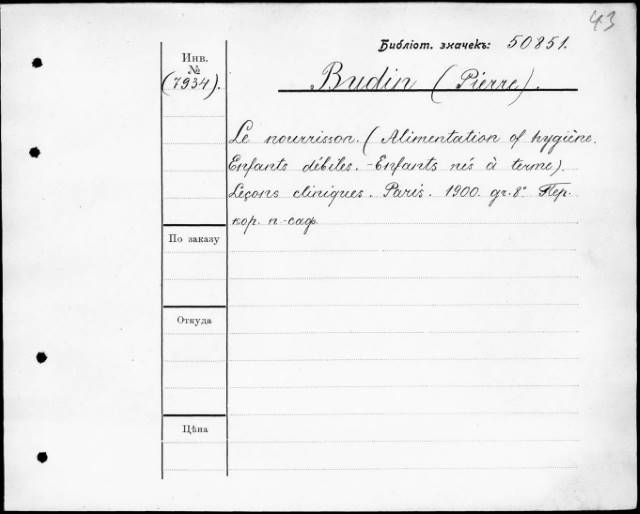 43
Библіот. значекъ: 50851.
Инв.
№
(7934).
Budin (Pierre).
Le nourrisson. (Alimentation of hygiène.
Enfants débiles. - Enfants nés à terme).
Leçons cliniques. Paris. 1900. gr. 8° Пер.
кор. п-саф.
По заказу
Откуда
Цѣна